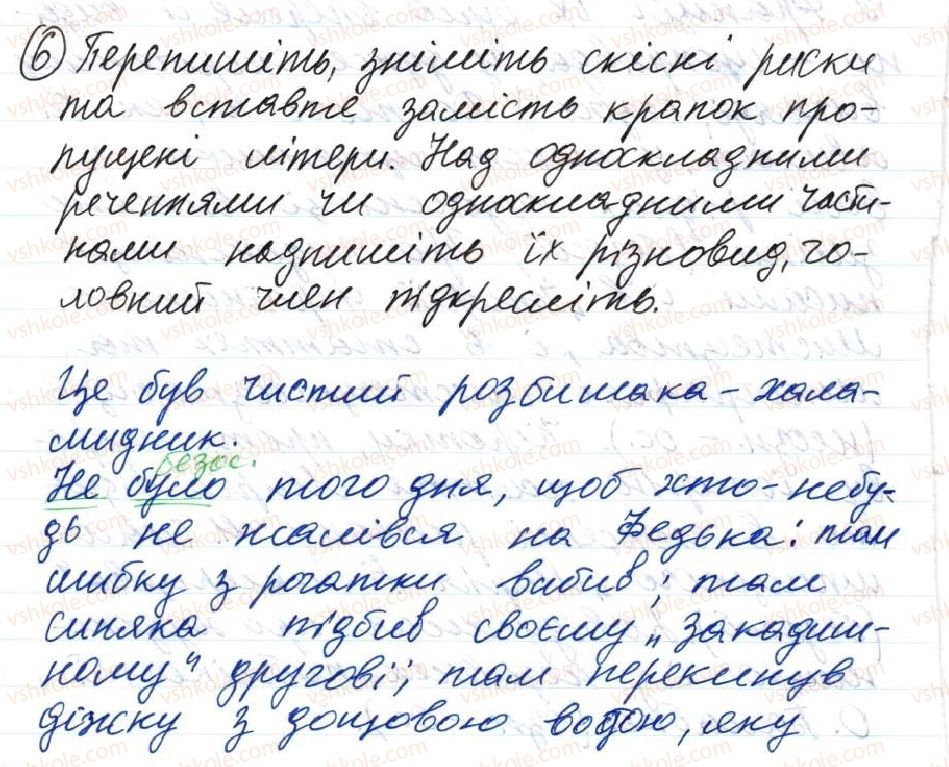 6 Перепишіть, зніміть скісні риски
та вставте замість крапок про-
пущені літери. Над односкладними
реченнями чи односкладними части-
нами надпишіть їх різновид, го-
ловний член підкресліть.
Це був чистий розбишака-хала-
мидник.
безос.
Не було того дня, щоб хто-небу-
дь не жалівся на Федька: там
шибку з рогатки вибив; там
синяка підбив своєму „закадиш-
ному" другові; там перекинув
діжку з дощовою водою, яку